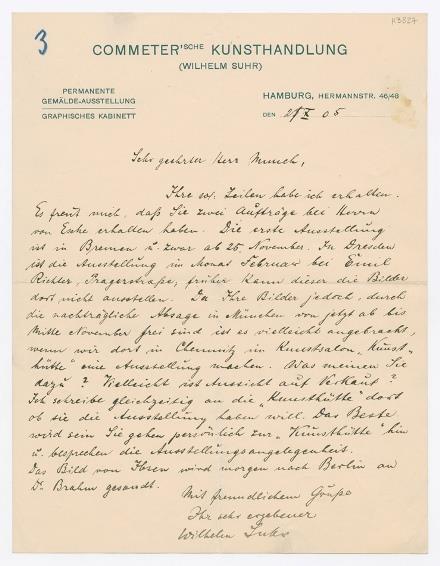 K3827
3
COMMETER'SCHE KUNSTHANDLUNG
(WILHELM SUHR)
PERMANENTE
GEMÄLDE-AUSSTELLUNG
GRAPHISCHES KABINETT
HAMBURG, HERMANNSTR. 46/48
DEN X 05
Sehr geehrter Herr Munch,
Ihre w. Zeilen habe ich erhalten.
Es freut mich, daß Sie zwei Aufträge bei Herrn
von Esche erhalten haben. Die erste Ausstellung
ist in Bremen u. zwar ab 25 November. In Dresden
ist die Ausstellung im Monat Februar bei Emil
Richter, Pragerstraße, früher kann dieser die Bilder
dort nicht ausstellen. Da Ihre Bilder jedoch, durch
die nachträgliche Absage in München von jetzt ab bis
Mitte November frei sind ist es vielleicht angebracht,
wenn wir dort in Chemnitz im Kunstsalon „Kunst-
hütte" eine Ausstellung machen. Was meinen Sie
dazu? Vielleicht ist Aussicht auf Verkauf?
Ich schreibe gleichzeitig an die „Kunsthütte" dort
ob sie die Ausstellung haben will. Das Beste
wird sein Sie gehen persönlich zur „Kunsthütte" hin
u. besprechen die Ausstellungsangelegenheit.
Das Bild von Ibsen wird morgen nach Berlin an
Dr. Brahm gesandt.
Mit freundlichem Gruße
Ihr sehr ergebener
Wilhelm Suhr